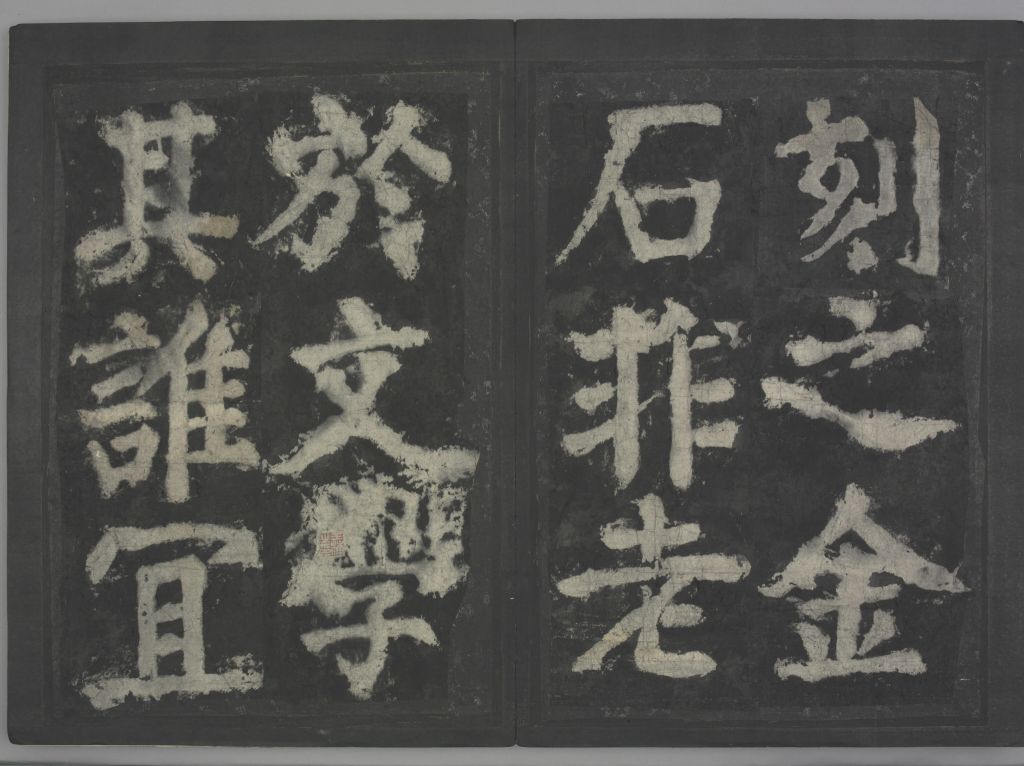 刻之金
石非老
於文學
其誰宜